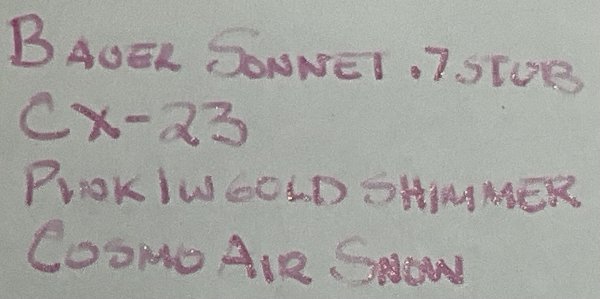 BAUER SONNET .7 STUB
CX-23
PINK/W GOLD SHIMMER
COSMO AIR SNOW